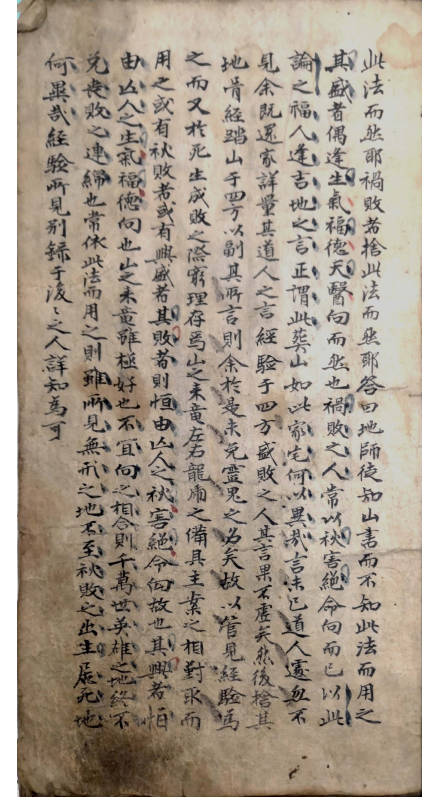 此法而然耶禍敗者捨此法而然耶答曰地師徒知山書而不知此法而用之
其盛者偶逢生氣福德天醫向而然也禍敗之人常以秋害絶命向而已以此
論之福人逢吉地之言正謂此葬山如此家宅何以異哉言未已道人處無不
見余既還家詳量其道人之言經驗于四方盛敗之人其言果不虛矣然後捨其
地骨經踏山于四方以副其所言則余於是未免靈鬼之名矣故以管見經驗爲
之而又於死生成敗之際窮理存焉山之來竜左右龍虎之備具主案之相對取而
用之或有秋敗者或有興盛者其敗者則恒由亾人之秋害絶命向故也其興者恒
由亾人之生氣福德向也山之來竜雖極好也不宜向之相合則千萬世英雄之地終不
免喪敗之連綿也常依此法而用之則雖所見無形之地不至秋敗之出生居死地
何異哉經驗所見別録于後〻之人詳知爲可